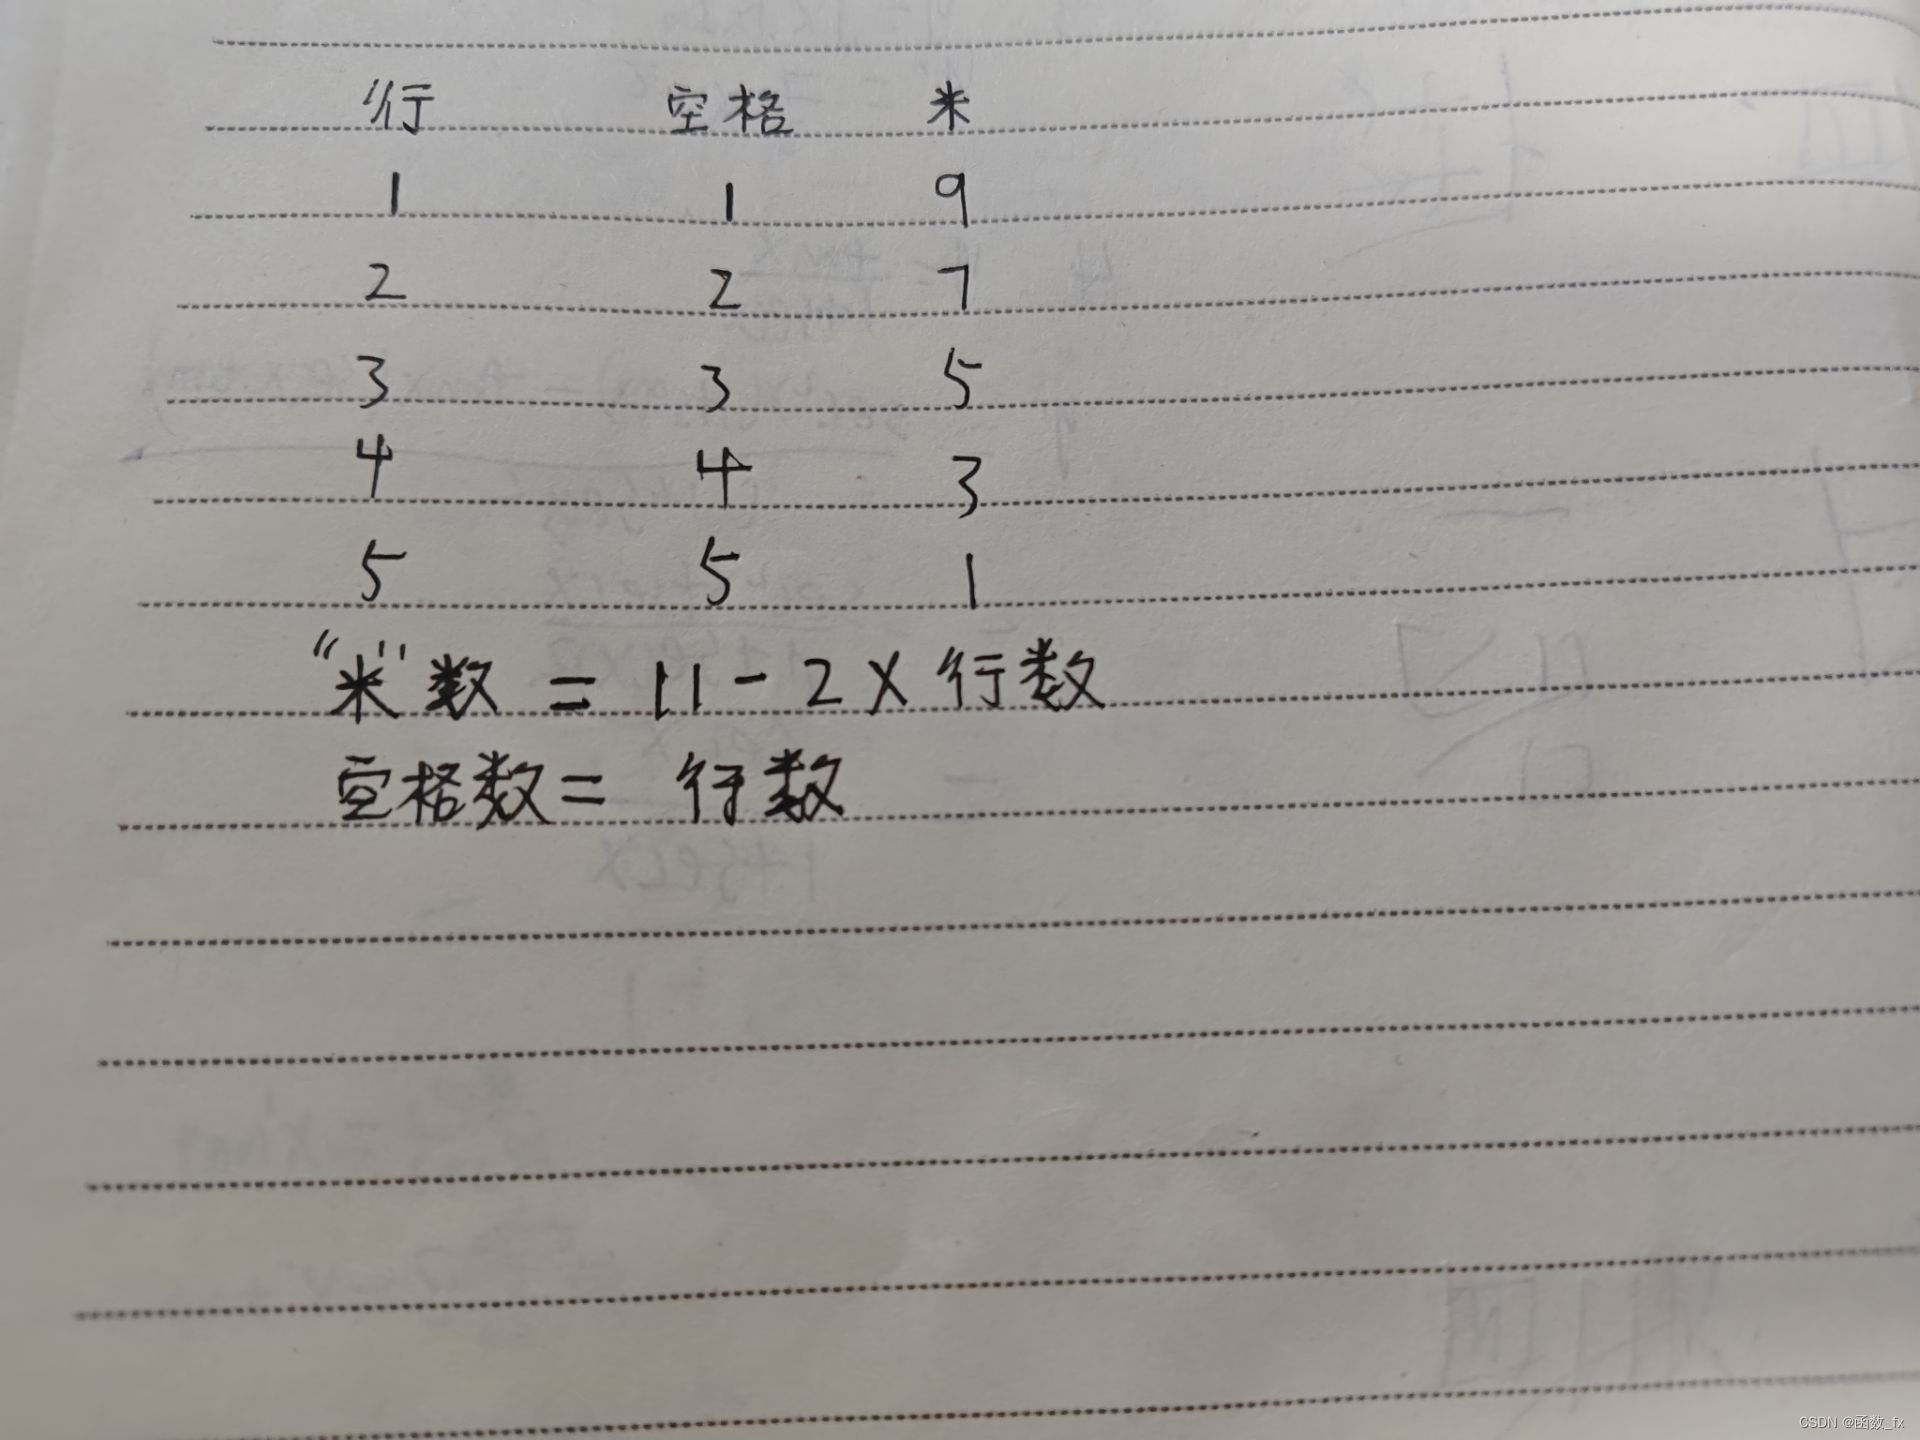 行 空格 米
1 1 9
2 2 7
3 3 5
4 4 3
5 5 1
“米”数 = 11 - 2 × 行数
空格数 = 行数
CSDN @函数_fx